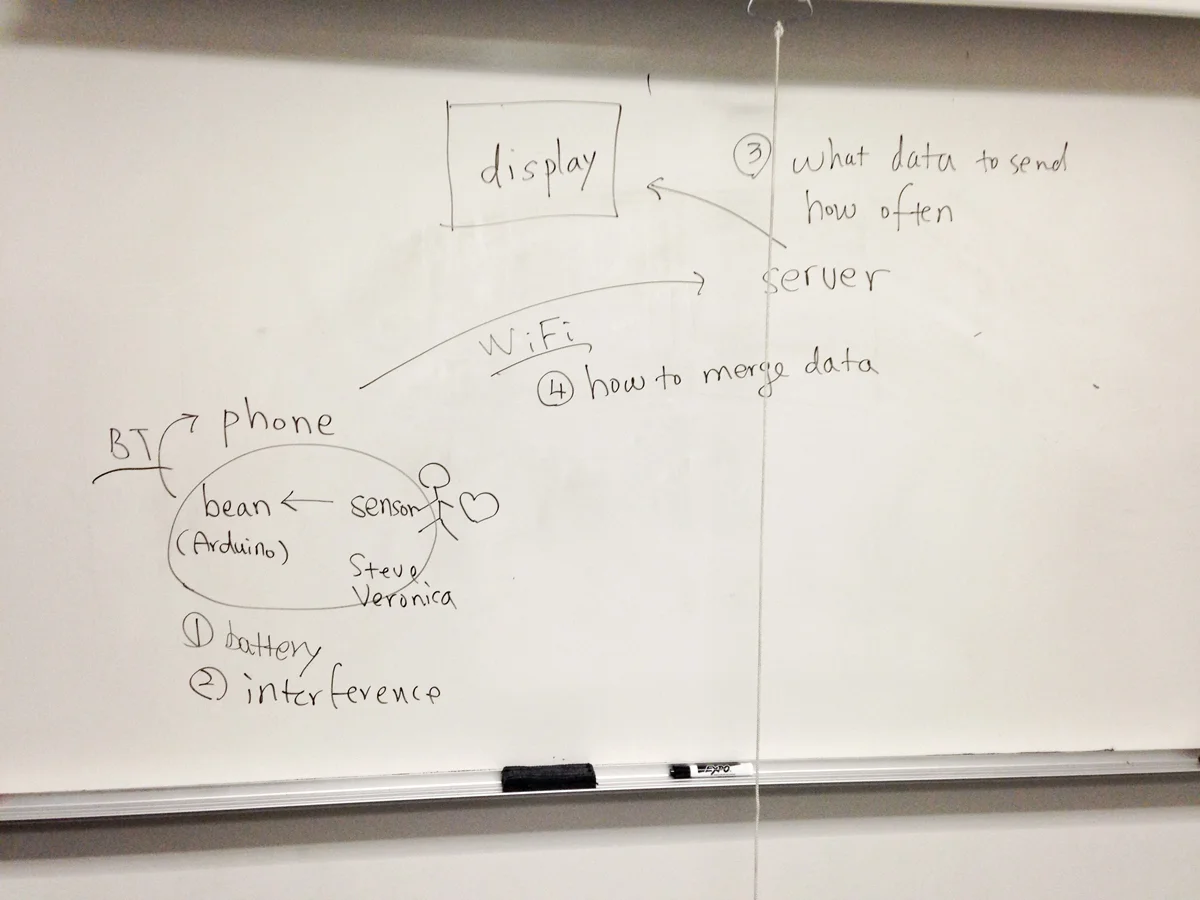 display
③ what data to send
how often
server
WiFi
④ how to merge data
BT
phone
bean ← sensor
(Arduino)
Steve
Veronica
① battery
② interference
EXPO